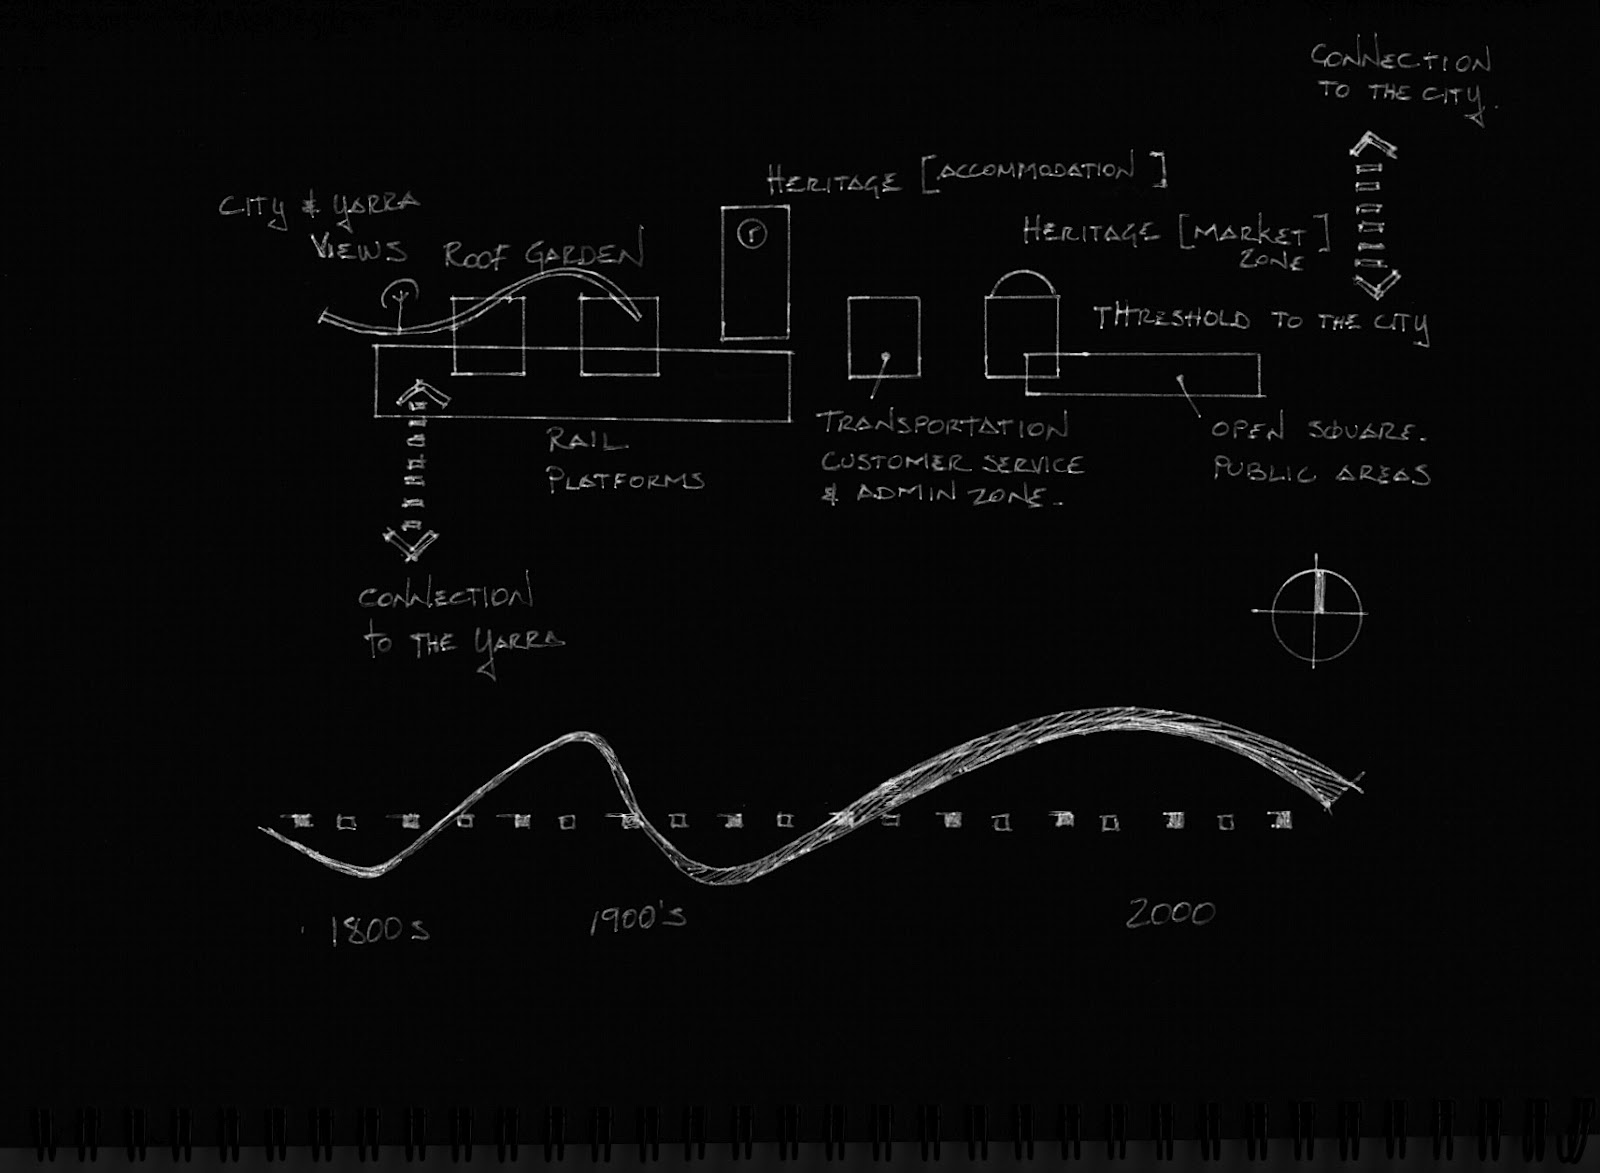 CONNECTION
TO THE CITY.
HERITAGE [ACCOMMODATION]
CITY & YARRA
VIEWS
ROOF GARDEN
HERITAGE [MARKET
ZONE]
THRESHOLD TO THE CITY
RAIL
PLATFORMS
TRANSPORTATION
CUSTOMER SERVICE
& ADMIN ZONE.
OPEN SQUARE.
PUBLIC AREAS
CONNECTION
TO THE YARRA
1800s
1900's
2000